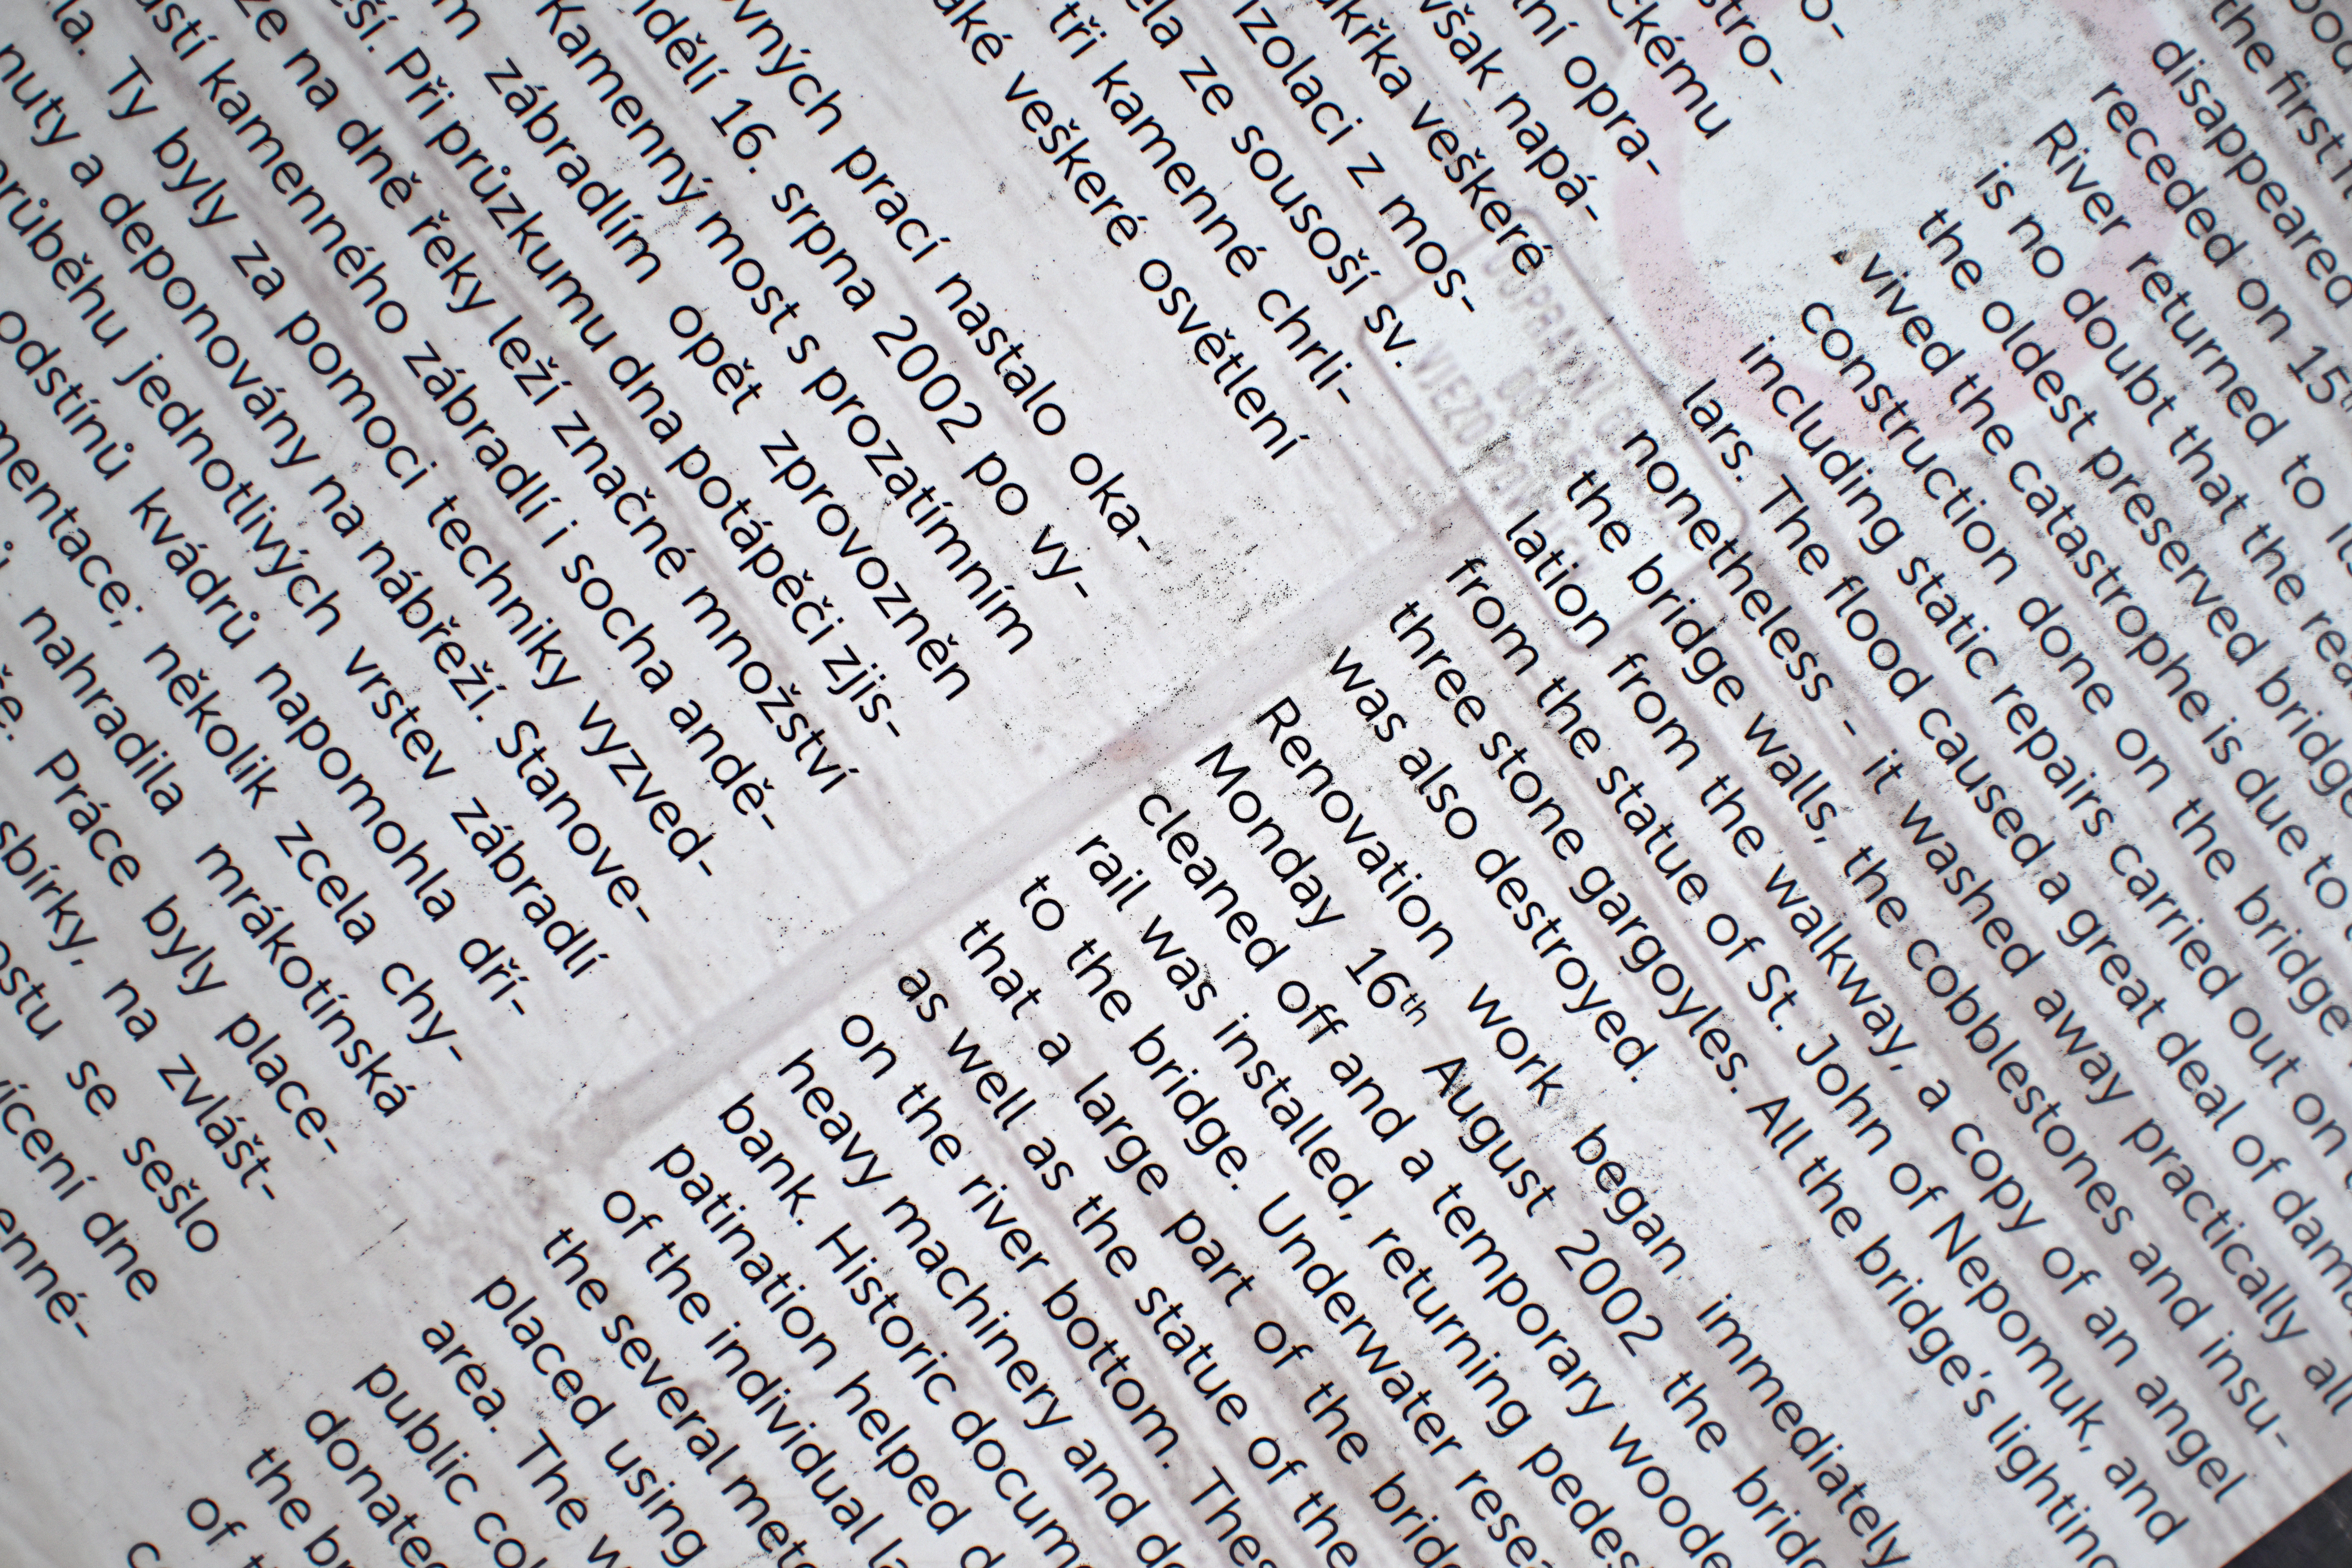 stro-
ckému
ní opra-
však napá-
veškeré
izolaci z mos-
ze sousoší sv.
tři kamenné chrli-
veškeré osvětlení
prací nastalo oka-
16. srpna 2002 po vy-
Kamenný most s prozatímním
zábradlím opět zprovozněn
Při průzkumu dna potápěči zjis-
ze na dně řeky leží značné množství
kamenného zábradlí i socha andě-
la. Ty byly za pomoci techniky vyzved-
nuty a deponovány na nábřeží. Stanove-
průběhu jednotlivých vrstev zábradlí
odstínů kvádrů napomohla dří-
mentace; několik zcela chy-
nahradila mrákotínská
Práce byly place-
sbírky, na zvlášt-
se sešlo
dne
enné-
the first
disappeared
receded on 15
River returned to
is no doubt that the
the oldest preserved bridge
vived the catastrophe is due to
construction done on the bridge
including static repairs carried out on
lars. The flood caused a great deal of dam
nonetheless - it washed away practically all
the bridge walls, the cobblestones and insu-
lation from the walkway, a copy of an angel
from the statue of St. John of Nepomuk, and
three stone gargoyles. All the bridge's lighting
was also destroyed.
Renovation work began immediately
Monday 16th August 2002 the bridg
cleaned off and a temporary woode
rail was installed, returning pedes
to the bridge. Underwater rese
that a large part of the bridg
as well as the statue of the
on the river bottom. Thes
heavy machinery and de
bank. Historic docum
patination helped d
of the individual la
the several mete
placed using
area. The w
public col
donated
the br
of t